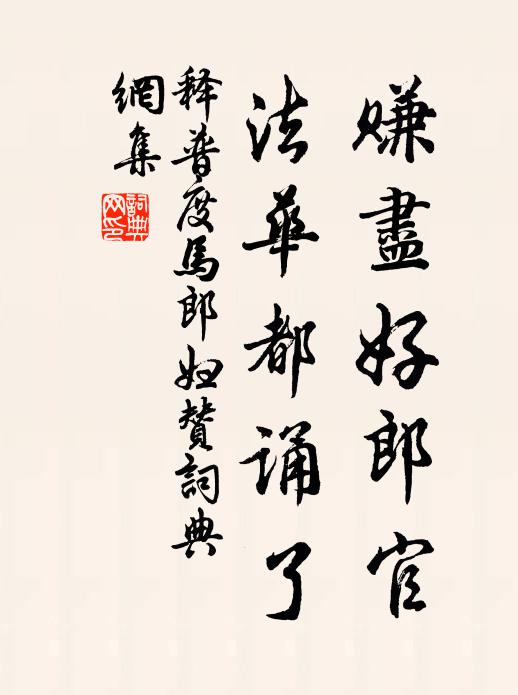 赚盡好郎官
法華都诵了
释普度馬郎婦赞詞典
網集
詞典
网印